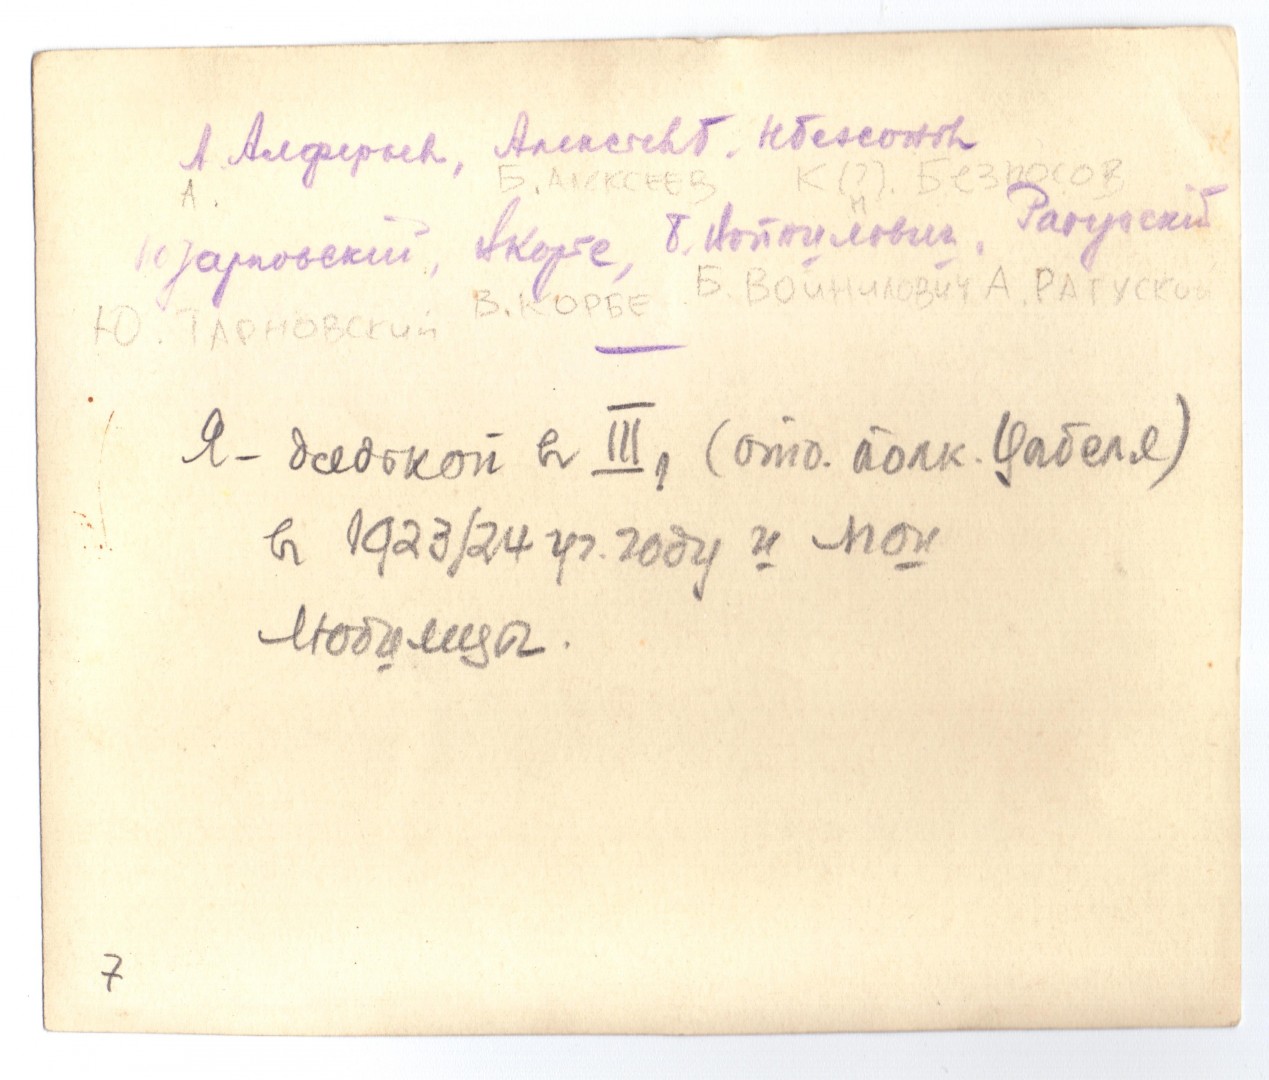 А. Алферьев, Алексеевъ,
А. Б. АЛЕКСЕЕВ К(?). БЕЗНОСОВ
Ю Тарновский, В Корбе, Б. Войнилович, Ратускій
Н
Ю. ТАРНОВСКИЙ В. КОРБЕ Б. ВОЙНИЛОВИЧ А. РАТУСКИЙ
Я – дядькой в III, (отд. полк. Цабеля)
в 1923/24 уч. году и мои
любимцы.
7